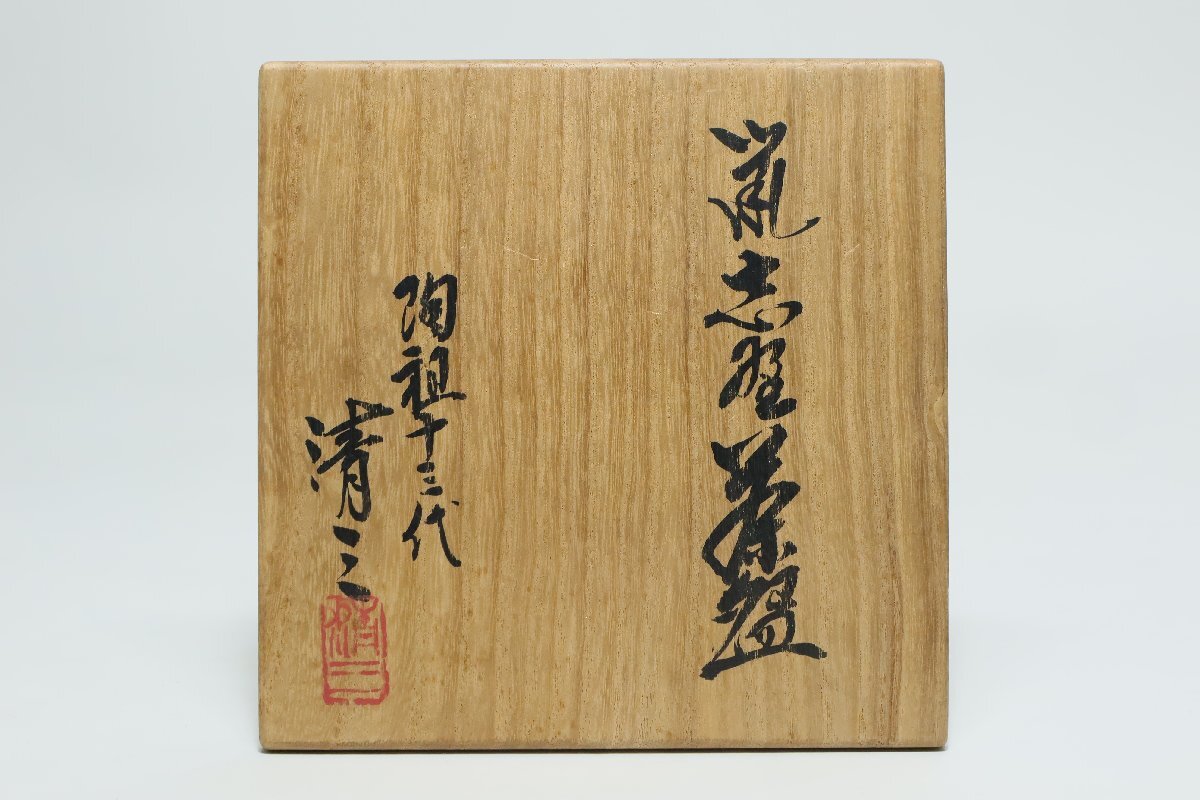 鼠志野茶盌
陶祖十三代
清三
清三